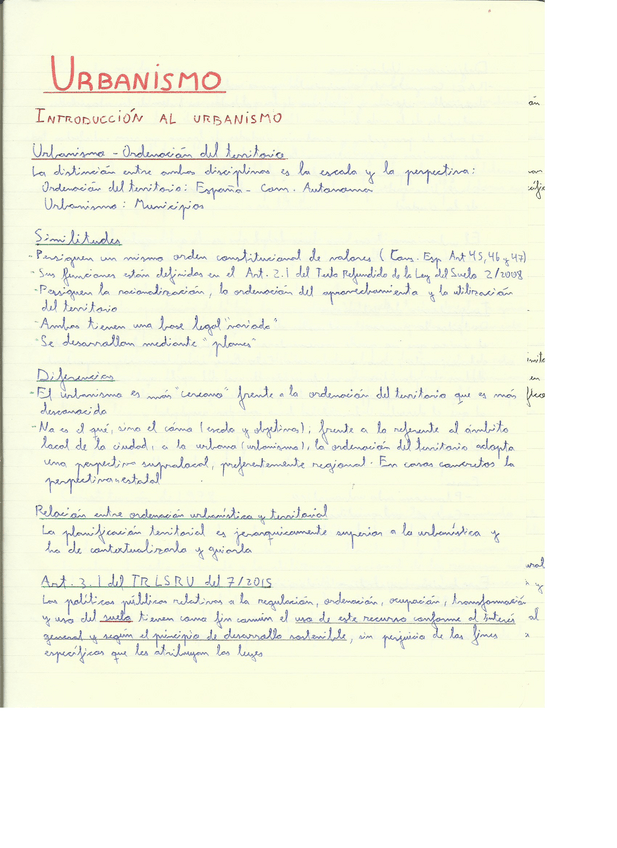 URBANISMO
INTRODUCCIÓN AL URBANISMO
Urbanismo - Ordenación del territorio
La distinción entre ambas disciplinas es la escala y la perspectiva:
Ordenación del territorio: España - Com. Autonoma
Urbanismo: Municipios
Similitudes
- Persiguen un mismo orden constitucional de valores (Con. Esp. Art 45, 46 y 47)
- Sus funciones están definidas en el Art. 2.1 del Texto Refundido de la Ley del Suelo 2/2008
- Persiguen la racionalización, la ordenación del aprovechamiento y la utilización
del territorio
- Ambas tienen una base legal "variada"
- Se desarrollan mediante "planes"
Diferencias
- El urbanismo es más "cercano" frente a la ordenación del territorio que es más
desconocido
- No es el qué, sino el cómo (escala y objetivos), frente a lo referente al ámbito
local de la ciudad, a lo urbano (urbanismo), la ordenación del territorio adopta
una perspectiva supralocal, preferentemente regional. En casos concretos la
perspectiva es estatal
Relación entre ordenación urbanística y territorial
La planificación territorial es jerarquicamente superior a la urbanística y
ha de contextualizarla y guiarla
Art. 3.1 del TRLSRU del 7/2015
Las políticas públicas relativas a la regulación, ordenación, ocupación, transformación
y uso del suelo tienen como fin común el uso de este recurso conforme al interés
general y según el principio de desarrollo sostenible, sin perjuicio de los fines
específicos que les atribuyan las leyes